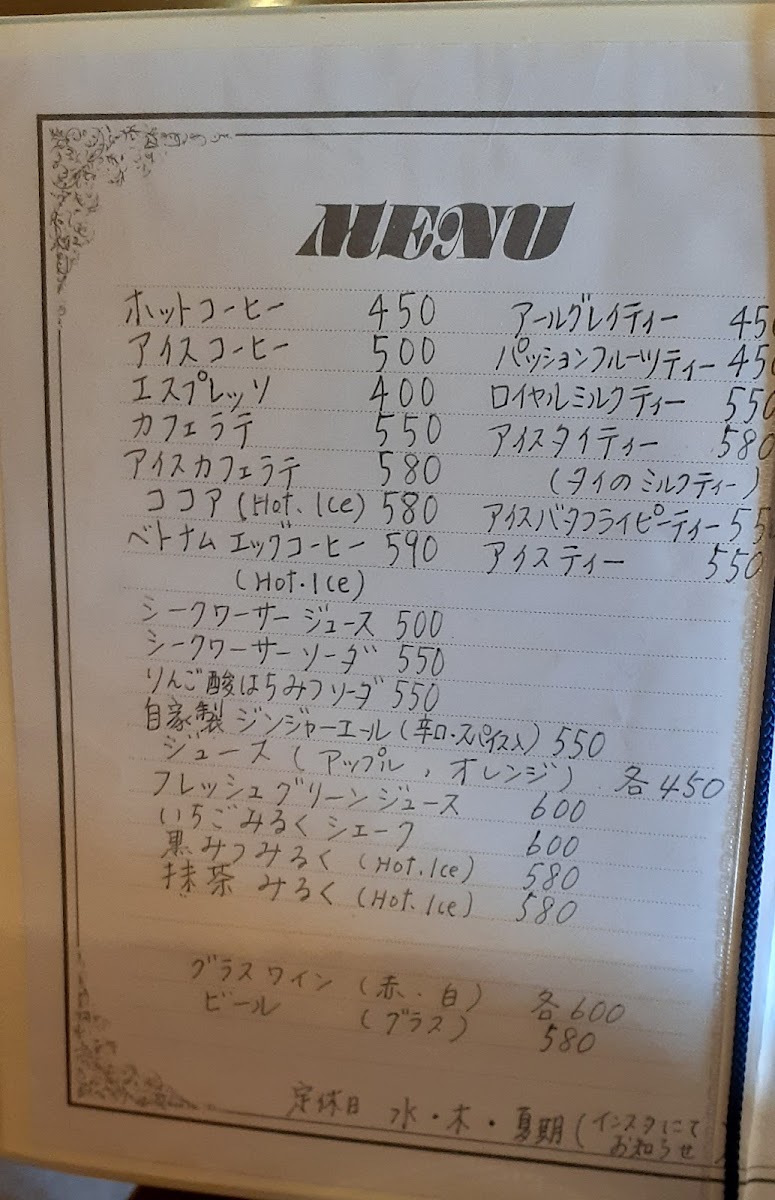 MENU
ホットコーヒー 450
アイスコーヒー 500
エスプレッソ 400
カフェラテ 550
アイスカフェラテ 580
ココア (Hot. Ice) 580
ベトナム エッグコーヒー 590
(Hot・Ice)
シークワーサー ジュース 500
シークワーサー ソーダ 550
りんご酸はちみつソーダ 550
自家製 ジンジャーエール (辛口・スパイス入) 550
ジュース ( アップル , オレンジ ) 各 450
フレッシュグリーンジュース 600
いちごみるく シェーク 600
黒みつみるく (Hot. Ice) 580
抹茶 みるく (Hot. Ice) 580
アールグレイティー 450
パッションフルーツティー 450
ロイヤルミルクティー 550
アイスタイティー 580
(タイのミルクティー)
アイスバタフライピーティー 550
アイスティー 550
グラスワイン (赤・白) 各600
ビール (グラス) 580
定休日 水・木・夏期 (インスタにて
お知らせ )